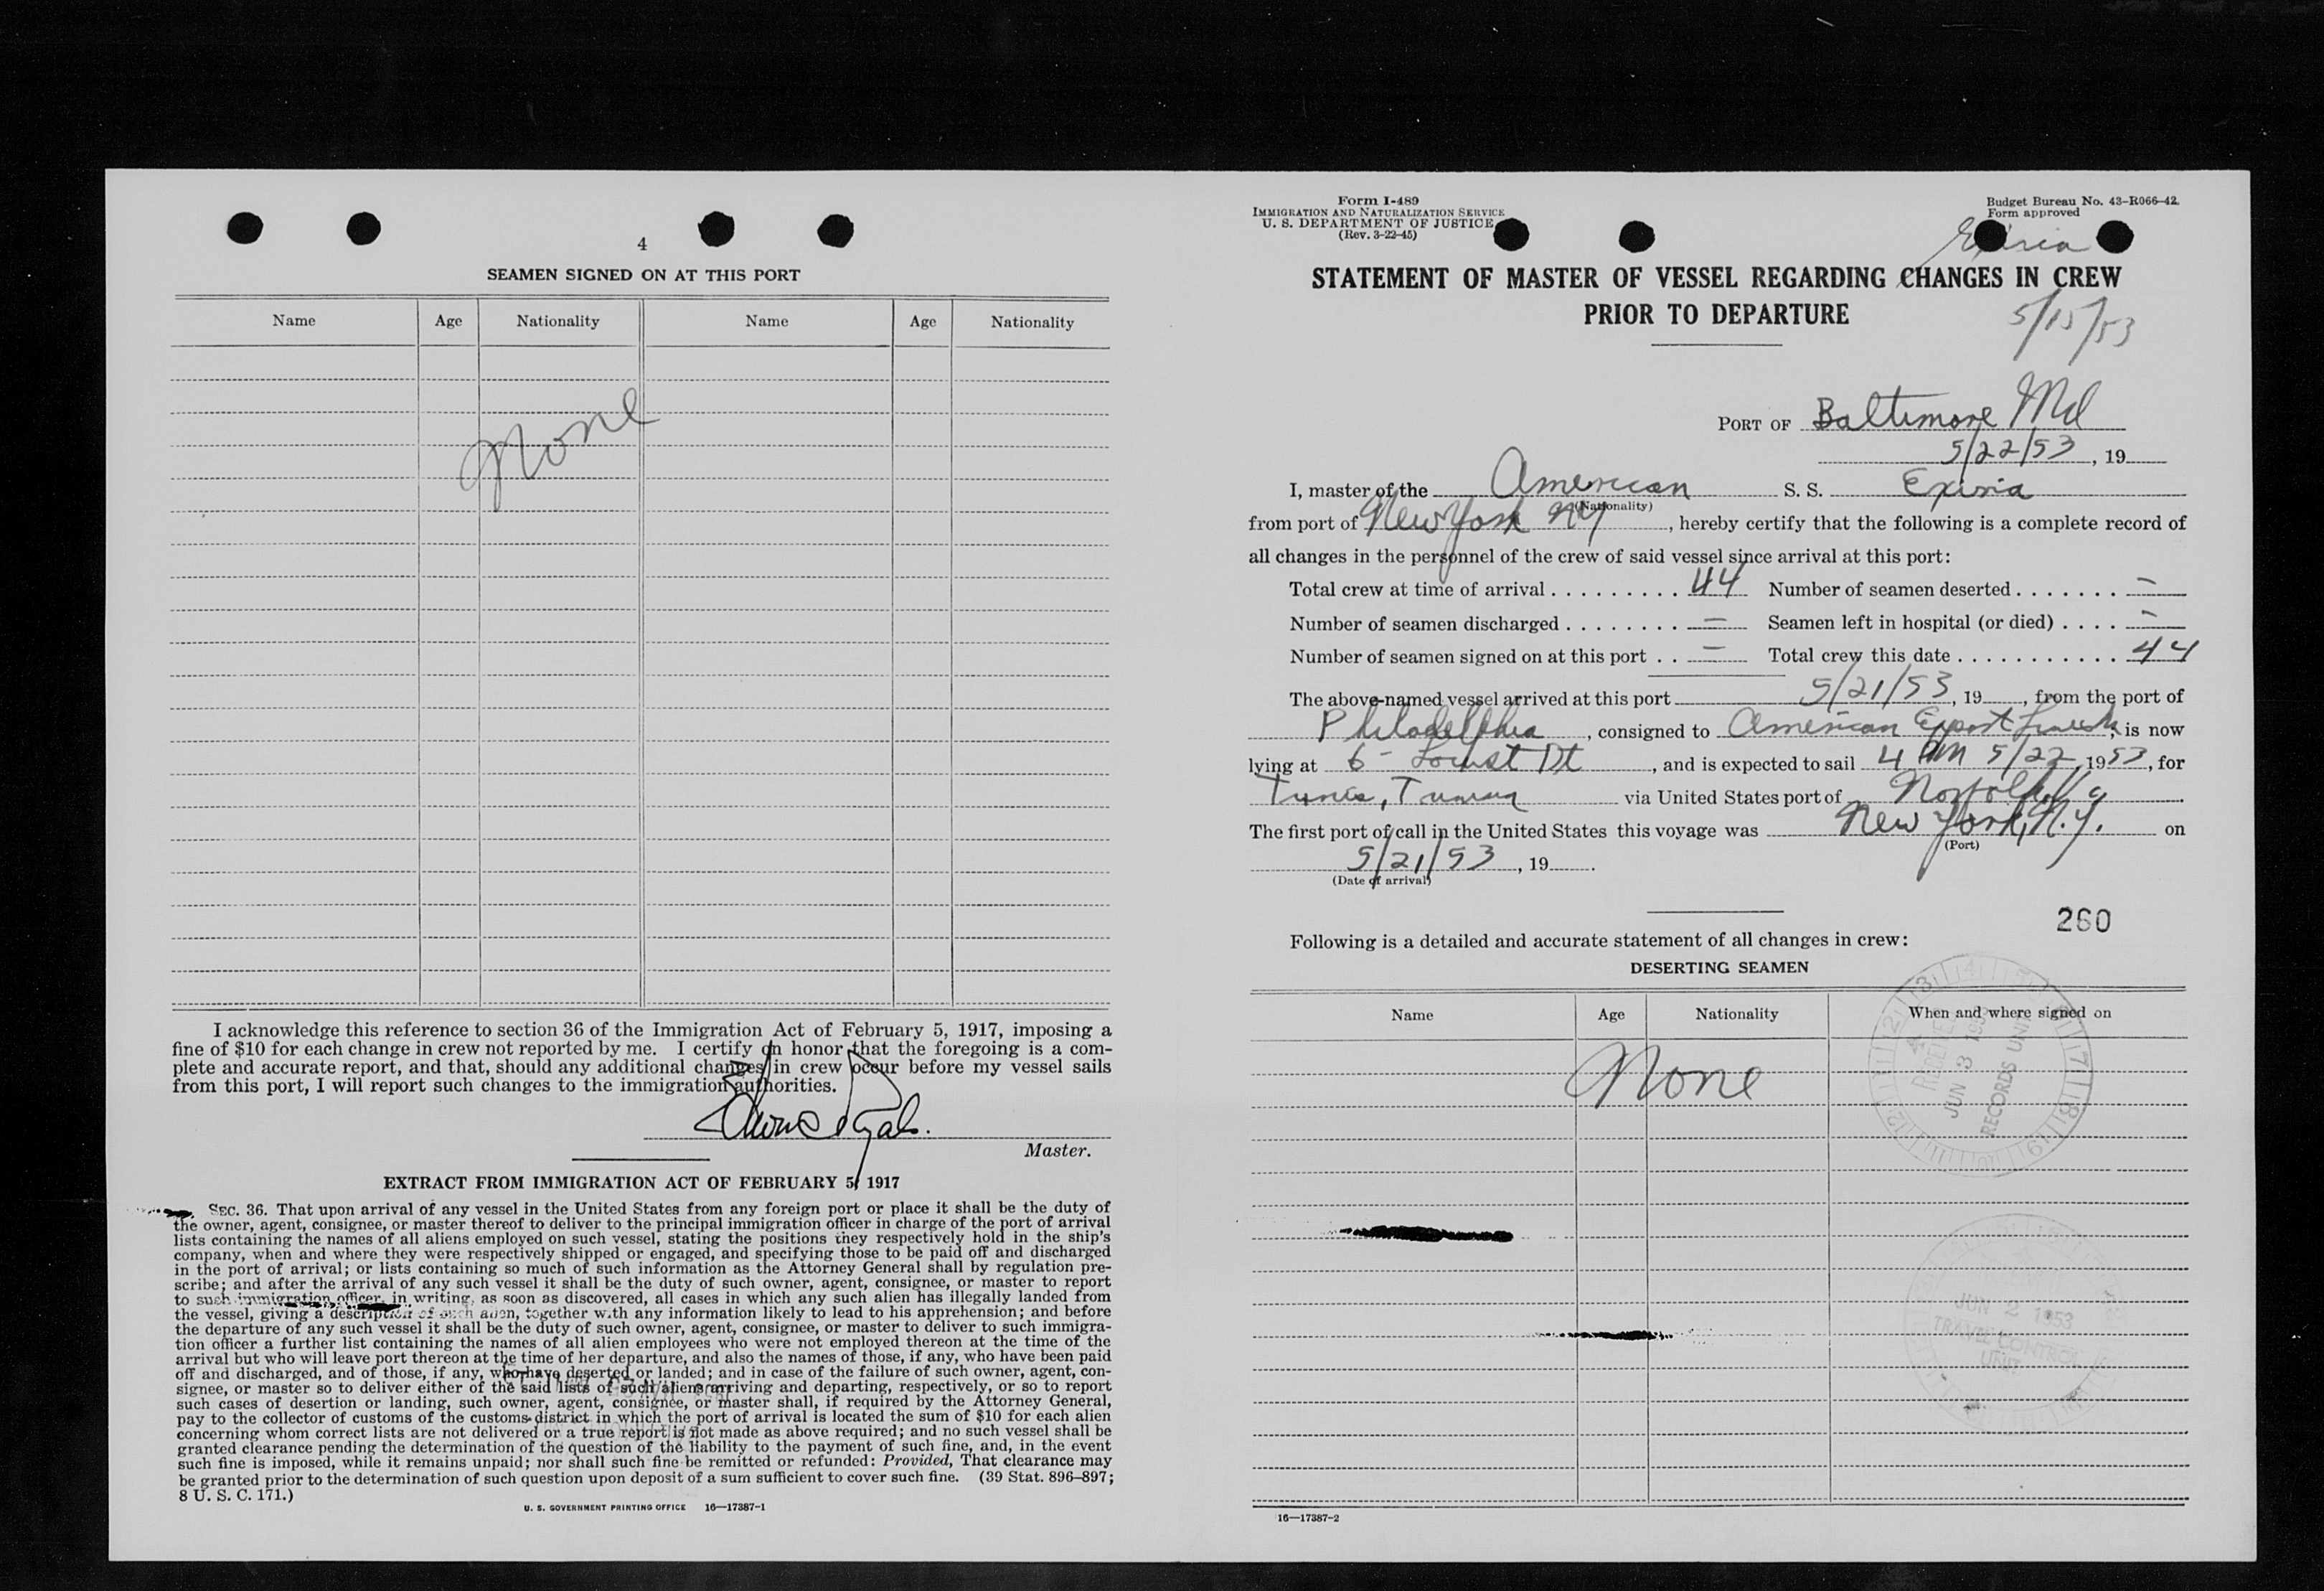 4
SEAMEN SIGNED ON AT THIS PORT
Name Age Nationality Name Age Nationality
None
I acknowledge this reference to section 36 of the Immigration Act of February 5, 1917, imposing a
fine of $10 for each change in crew not reported by me. I certify on honor that the foregoing is a com-
plete and accurate report, and that, should any additional changes in crew occur before my vessel sails
from this port, I will report such changes to the immigration authorities.
Master.
EXTRACT FROM IMMIGRATION ACT OF FEBRUARY 5, 1917
SEC. 36. That upon arrival of any vessel in the United States from any foreign port or place it shall be the duty of
the owner, agent, consignee, or master thereof to deliver to the principal immigration officer in charge of the port of arrival
lists containing the names of all aliens employed on such vessel, stating the positions they respectively hold in the ship's
company, when and where they were respectively shipped or engaged, and specifying those to be paid off and discharged
in the port of arrival; or lists containing so much of such information as the Attorney General shall by regulation pre-
scribe; and after the arrival of any such vessel it shall be the duty of such owner, agent, consignee, or master to report
to such immigration officer, in writing, as soon as discovered, all cases in which any such alien has illegally landed from
the vessel, giving a description of such alien, together with any information likely to lead to his apprehension; and before
the departure of any such vessel it shall be the duty of such owner, agent, consignee, or master to deliver to such immigra-
tion officer a further list containing the names of all alien employees who were not employed thereon at the time of the
arrival but who will leave port thereon at the time of her departure, and also the names of those, if any, who have been paid
off and discharged, and of those, if any, who have deserted or landed; and in case of the failure of such owner, agent, con-
signee, or master so to deliver either of the said lists of such aliens arriving and departing, respectively, or so to report
such cases of desertion or landing, such owner, agent, consignee, or master shall, if required by the Attorney General,
pay to the collector of customs of the customs district in which the port of arrival is located the sum of $10 for each alien
concerning whom correct lists are not delivered or a true report is not made as above required; and no such vessel shall be
granted clearance pending the determination of the question of the liability to the payment of such fine, and, in the event
such fine is imposed, while it remains unpaid; nor shall such fine be remitted or refunded: Provided, That clearance may
be granted prior to the determination of such question upon deposit of a sum sufficient to cover such fine. (39 Stat. 896–897;
8 U. S. C. 171.)
U. S. GOVERNMENT PRINTING OFFICE 16—17387-1
Form I-489
IMMIGRATION AND NATURALIZATION SERVICE
U. S. DEPARTMENT OF JUSTICE
(Rev. 3-22-45)
Budget Bureau No. 43-R066-42.
Form approved
Exiria
STATEMENT OF MASTER OF VESSEL REGARDING CHANGES IN CREW
PRIOR TO DEPARTURE
5/15/53
PORT OF Baltimore Md
5/22/53, 19
I, master of the American S. S. Exiria
(Nationality)
from port of New York NY, hereby certify that the following is a complete record of
all changes in the personnel of the crew of said vessel since arrival at this port:
Total crew at time of arrival . . . . . . . . . 44 Number of seamen deserted . . . . . . . –
Number of seamen discharged . . . . . . . . – Seamen left in hospital (or died) . . . . –
Number of seamen signed on at this port . . – Total crew this date . . . . . . . . . . . 44
The above-named vessel arrived at this port 5/21/53, 19, from the port of
Philadelphia, consigned to American Export Lines, is now
lying at 6 - Locust Pt, and is expected to sail 4 PM 5/22, 1953, for
Tunis, via United States port of Norfolk Va
The first port of call in the United States this voyage was New York, N.Y. on
(Port)
5/21/53, 19.
(Date of arrival)
260
Following is a detailed and accurate statement of all changes in crew:
DESERTING SEAMEN
Name Age Nationality When and where signed on
None
RECEIVED
JUN 3 1953
RECORDS UNIT
JUN 2 1953
TRAVEL CONTROL
UNIT
16—17387-2